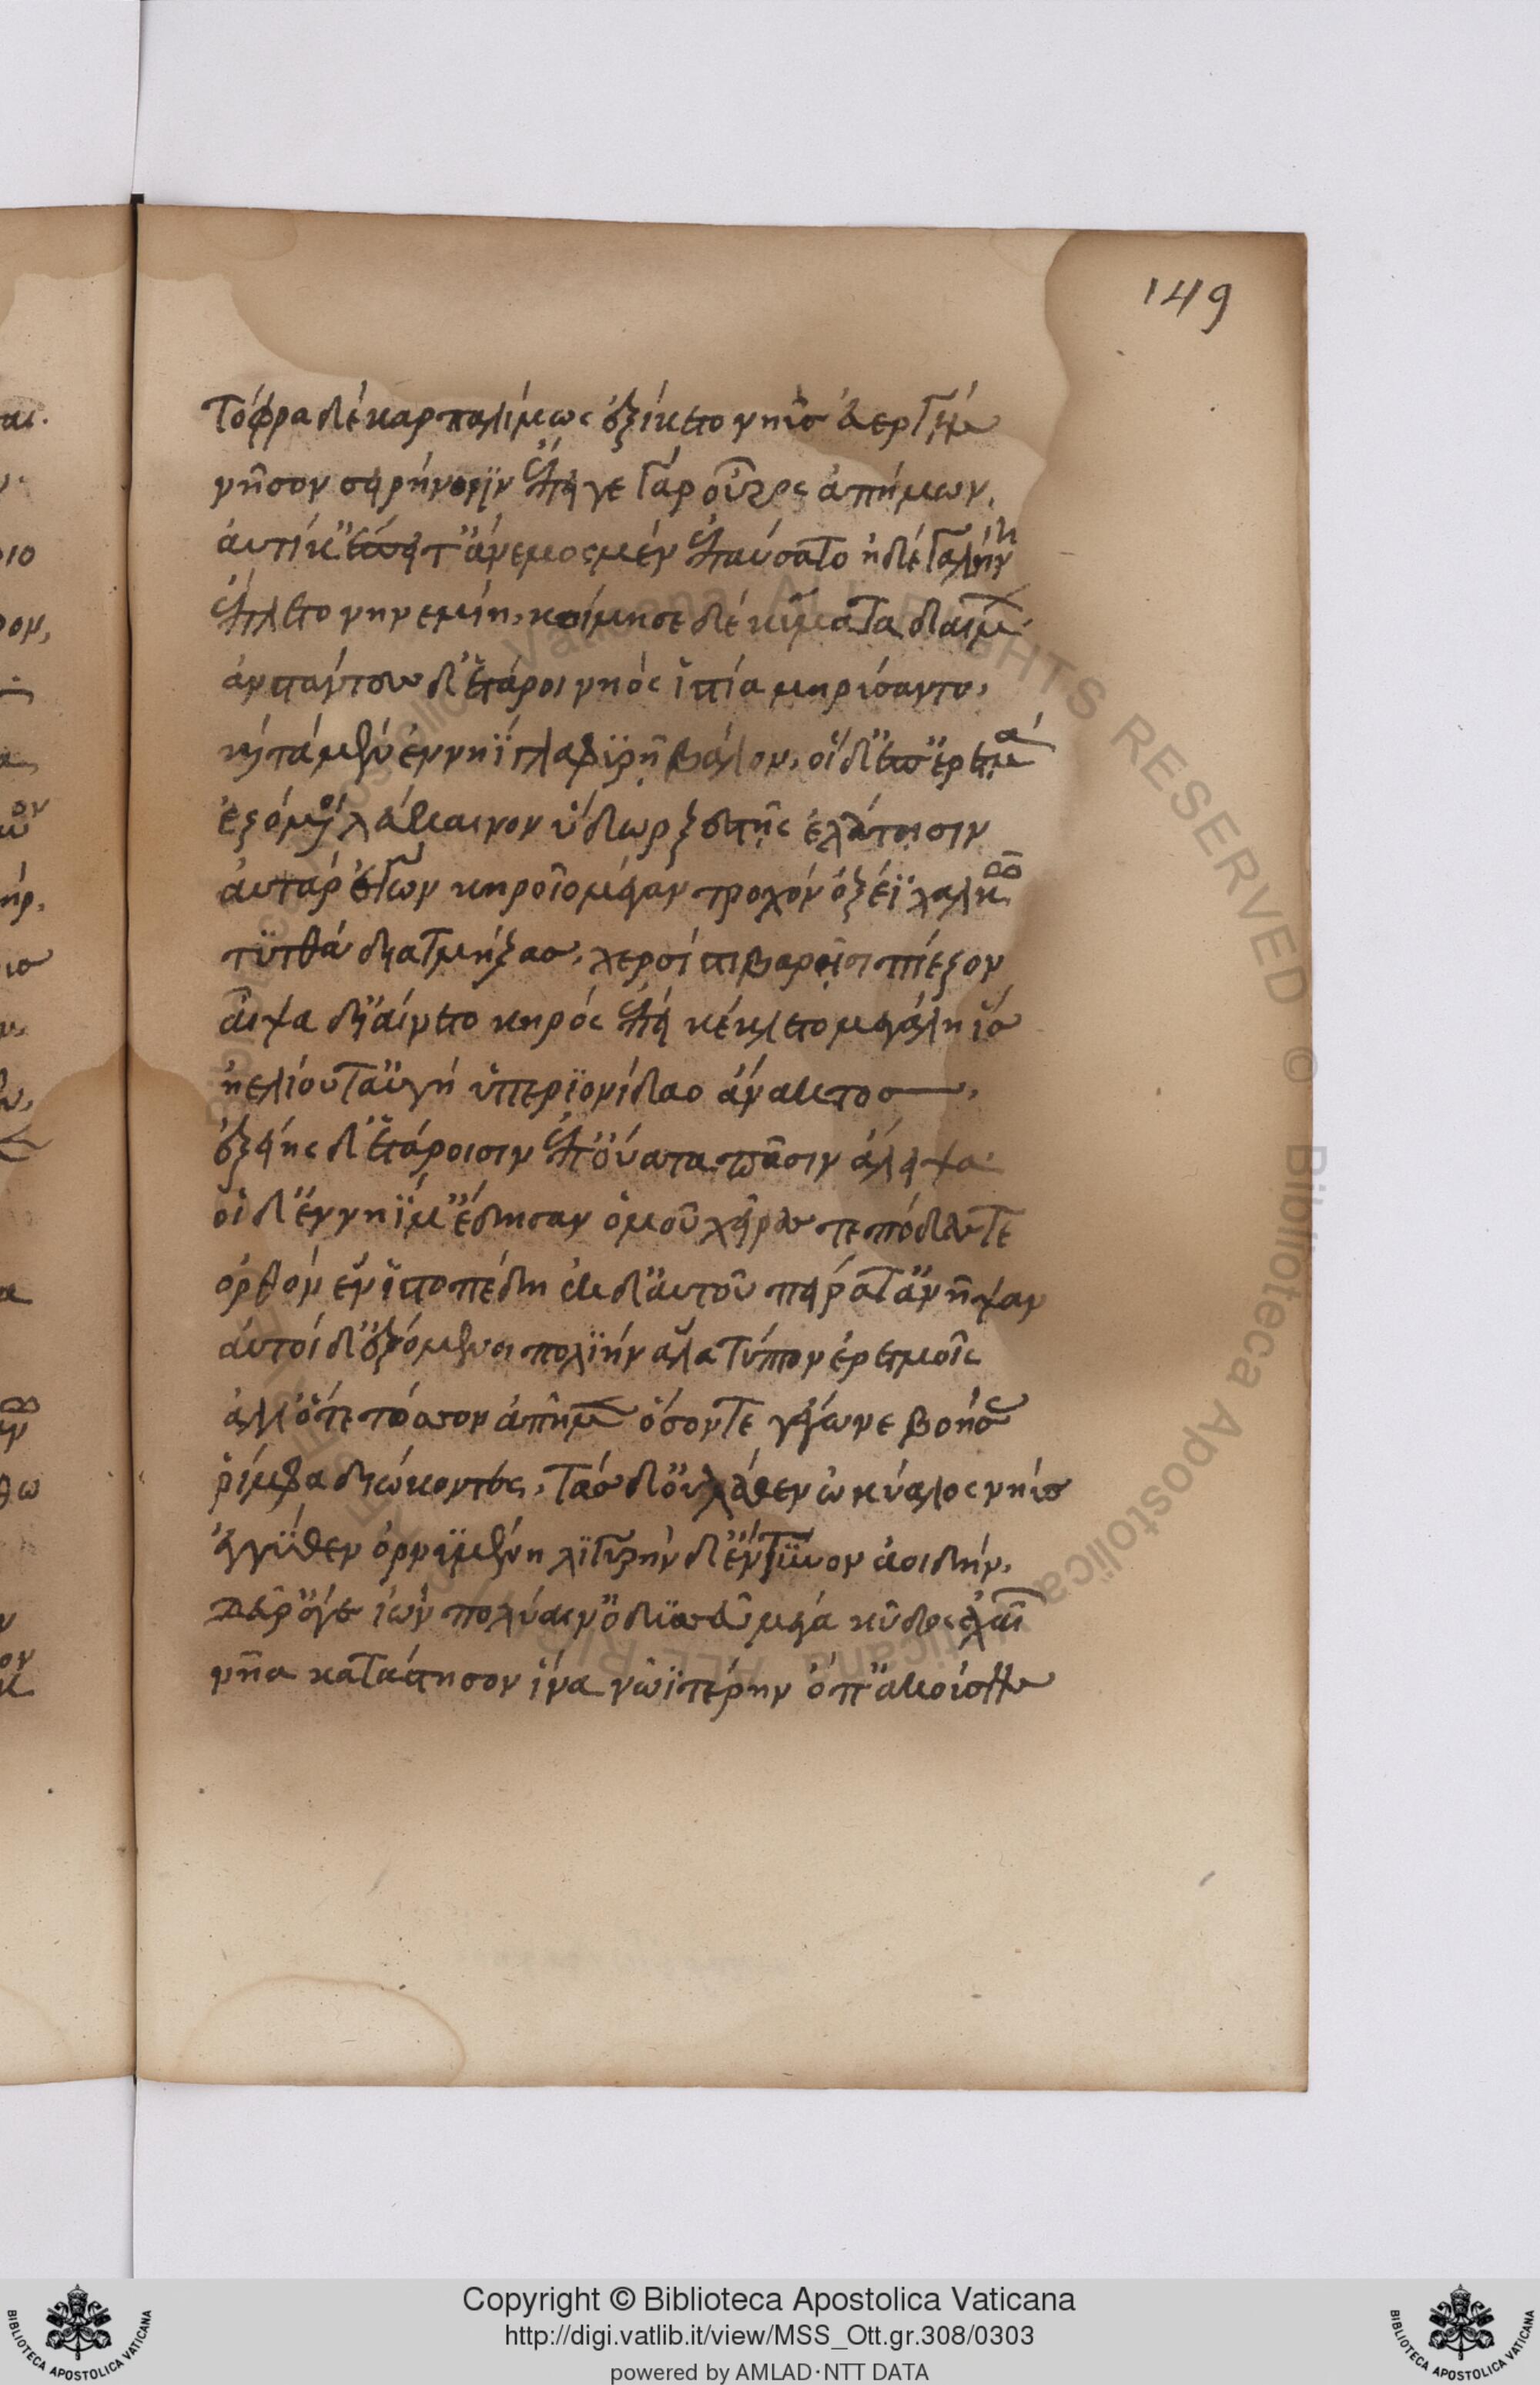 149
τόφρα δὲ καρπαλίμως ἐξίκετο νηῦσ ἐυεργὴς
νῆσον σειρήνοιϊν ἔπειγε γὰρ οὖρος ἀπήμων.
ἀυτίκ' ἔπειτ' ἄνεμος μὲν ἐπαύσατο ἠδὲ γαλήνη
ἔπλετο νηνεμίη, κοίμησε δὲ κύματα δαίμων.
ἀνστάντεσ δ' ἕταροι νηὸς ἱστία μηρύσαντο,
καὶ τὰ μὲν ἐν νηῒ γλαφυρῇ βάλον, οἱ δ' ἐπ' ἐρετμὰ
ἑζόμενοι λέυκαινον ὕδωρ ξεστῇς ἐλάτῃσιν
ἀυτὰρ ἐγὼν κηροῖο μέγαν τροχὸν ὀξέϊ χαλκῶ
τυτθὰ διατμήξασ, χερσὶ στιβαρῇσι πίεζον
αἶψα δ' ἰαίνετο κηρός ἐπεὶ κέκλετο μεγάλη ἲσ
ἠελίου τ' αὐγὴ ὑπεριονίδαο ἄνακτοσ,
ἑξείης δ' ἑτάροισιν ἐπ' οὔατα πᾶσιν ἄλειψα.
οἱ δ' ἐν νηΐ μ' ἔδησαν ὁμοῦ χεῖράσ τε πόδασ τε
ὀρθὸν ἐν ἱστοπέδη ἐκ δ' αυτοῦ πείρατ' ἀνῆψαν
ἀυτοὶ δ' ἑζόμενοι πολιὴν ἅλα τύπτον ἐρετμοῖς
ἀλλ' ὅτε τόσσον ἀπῆμεν ὅσον τε γέγωνε βοήσας
ῥίμφα διώκοντες, τὰσ δ' οὐ λάθεν ὠκύαλος νηῦσ
ἐγγύθεν ὀρνυμένη λιγυρὴν δ' ἔντυνον ἀοιδήν.
δεῦρ' ἄγε ἰὼν πολύαιν' ὀδυσεῦ μέγα κῦδος ἀχαιῶν
νῆα κατάστησον ἵνα νωϊτέρην ὄπ' ἀκούσῃς
Copyright © Biblioteca Apostolica Vaticana
http://digi.vatlib.it/view/MSS_Ott.gr.308/0303
powered by AMLAD·NTT DATA